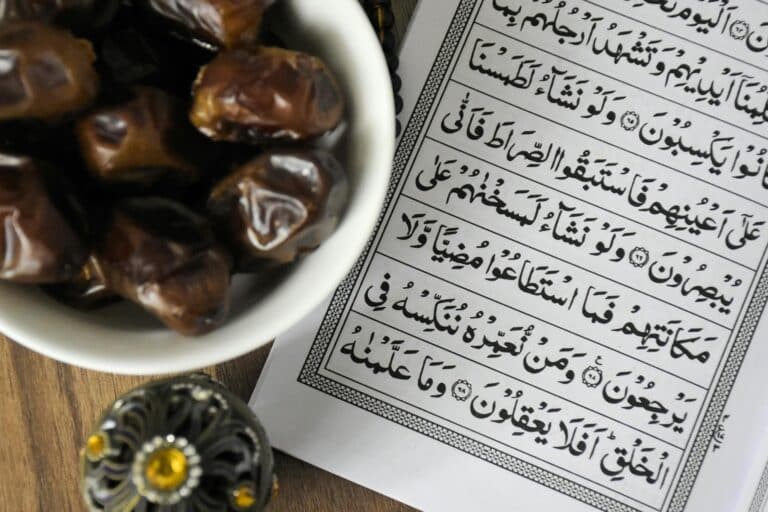 اَلْيَوْمَ
اَيْدِيْهِمْ وَتَشْهَدُ اَرْجُلُهُمْ بِمَا
يَكْسِبُوْنَ ۝٦٥ وَلَوْ نَشَآءُ لَطَمَسْنَا
عَلٰٓى اَعْيُنِهِمْ فَاسْتَبَقُوا الصِّرَاطَ فَاَنّٰى
يُبْصِرُوْنَ ۝٦٦ وَلَوْ نَشَآءُ لَمَسَخْنٰهُمْ عَلٰى
مَكَانَتِهِمْ فَمَا اسْتَطَاعُوْا مُضِيًّا وَّلَا
يَرْجِعُوْنَ ۝٦٧ وَمَنْ نُّعَمِّرْهُ نُنَكِّسْهُ فِى
الْخَلْقِؕ اَفَلَا يَعْقِلُوْنَ ۝٦٨ وَمَا عَلَّمْنٰهُ